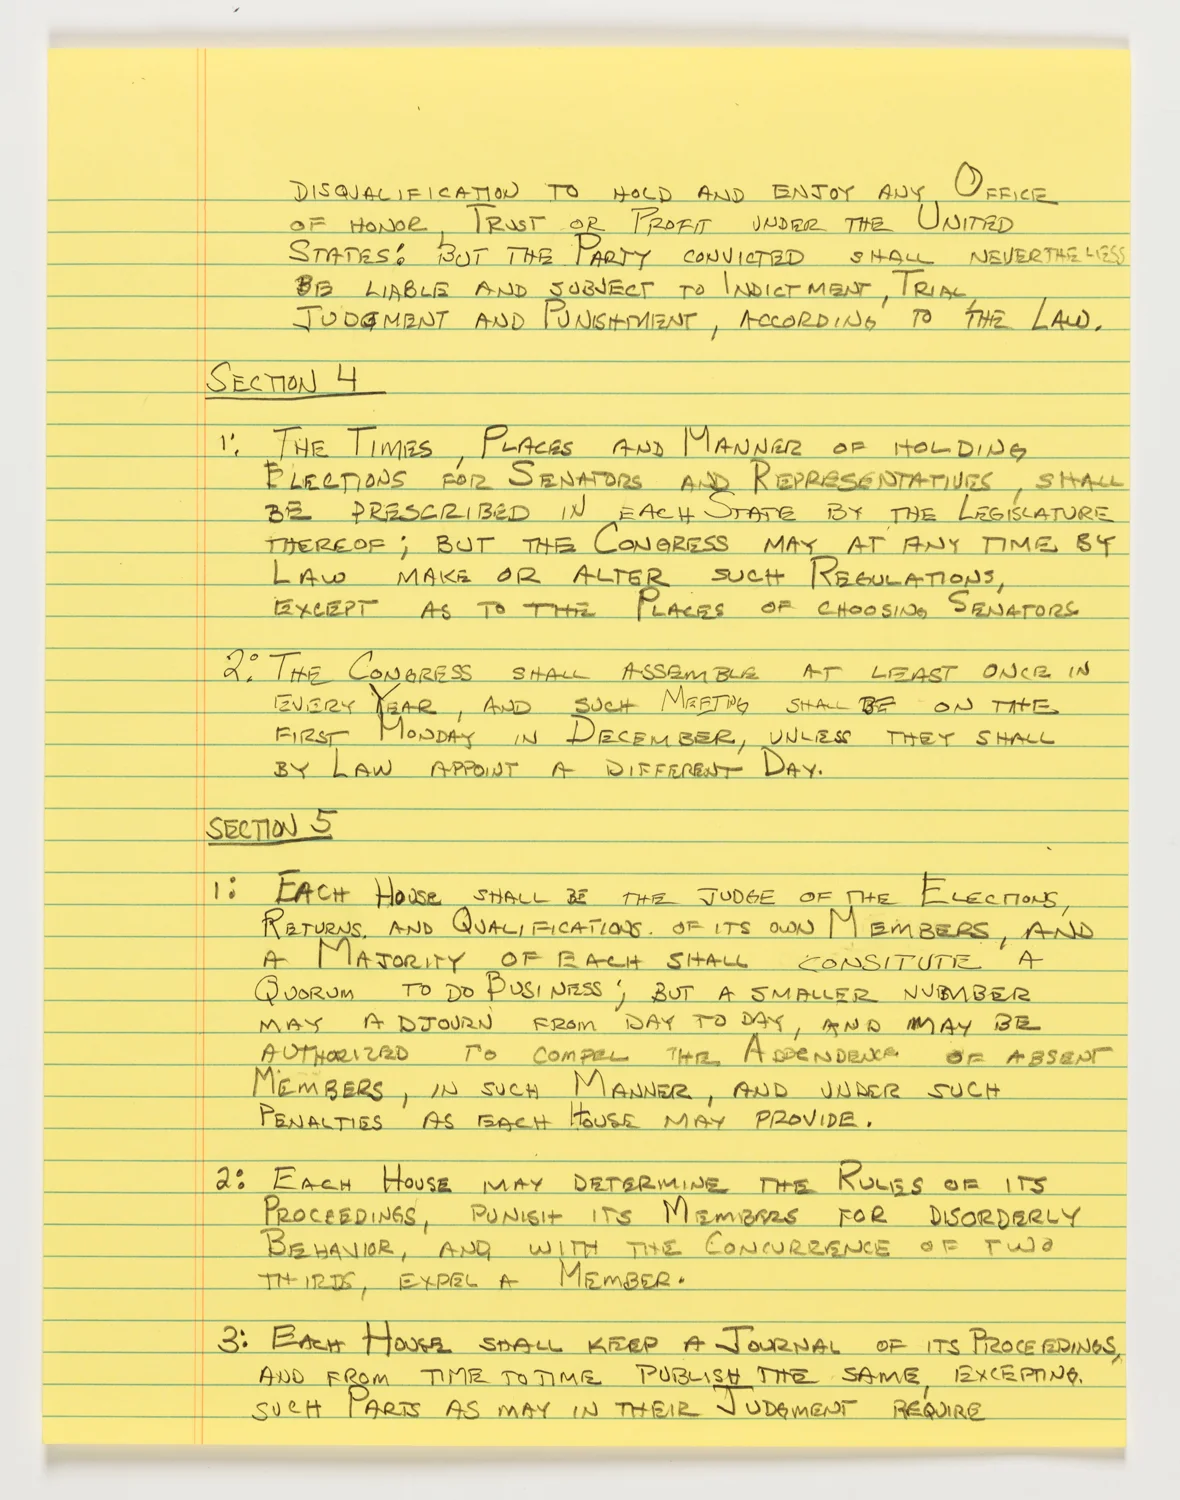 DISQUALIFICATION TO HOLD AND ENJOY ANY OFFICE
OF HONOR, TRUST OR PROFIT UNDER THE UNITED
STATES: BUT THE PARTY CONVICTED SHALL NEVERTHELESS
BE LIABLE AND SUBJECT TO INDICTMENT, TRIAL,
JUDGMENT AND PUNISHTMENT, ACCORDING TO THE LAW.
SECTION 4
1: THE TIMES, PLACES AND MANNER OF HOLDING
ELECTIONS FOR SENATORS AND REPRESENTATIVES, SHALL
BE PRESCRIBED IN EACH STATE BY THE LEGISLATURE
THEREOF; BUT THE CONGRESS MAY AT ANY TIME BY
LAW MAKE OR ALTER SUCH REGULATIONS,
EXCEPT AS TO THE PLACES OF CHOOSING SENATORS
2: THE CONGRESS SHALL ASSEMBLE AT LEAST ONCE IN
EVERY YEAR, AND SUCH MEETING SHALL BE ON THE
FIRST MONDAY IN DECEMBER, UNLESS THEY SHALL
BY LAW APPOINT A DIFFERENT DAY.
SECTION 5
1: EACH HOUSE SHALL BE THE JUDGE OF THE ELECTIONS,
RETURNS. AND QUALIFICATIONS. OF ITS OWN MEMBERS, AND
A MAJORITY OF EACH SHALL CONSITUTE A
QUORUM TO DO BUSINESS; BUT A SMALLER NUMBER
MAY ADJOURN FROM DAY TO DAY, AND MAY BE
AUTHORIZED TO COMPEL THE OF ABSENT
MEMBERS, IN SUCH MANNER, AND UNDER SUCH
PENALTIES AS EACH HOUSE MAY PROVIDE.
2: EACH HOUSE MAY DETERMINE THE RULES OF ITS
PROCEEDINGS, PUNISH ITS MEMBERS FOR DISORDERLY
BEHAVIOR, AND WITH THE CONCURRENCE OF TWO
THIRDS, EXPEL A MEMBER.
3: EACH HOUSE SHALL KEEP A JOURNAL OF ITS PROCEEDINGS,
AND FROM TIME TO TIME PUBLISH THE SAME, EXCEPTING.
SUCH PARTS AS MAY IN THEIR JUDGMENT REQUIRE